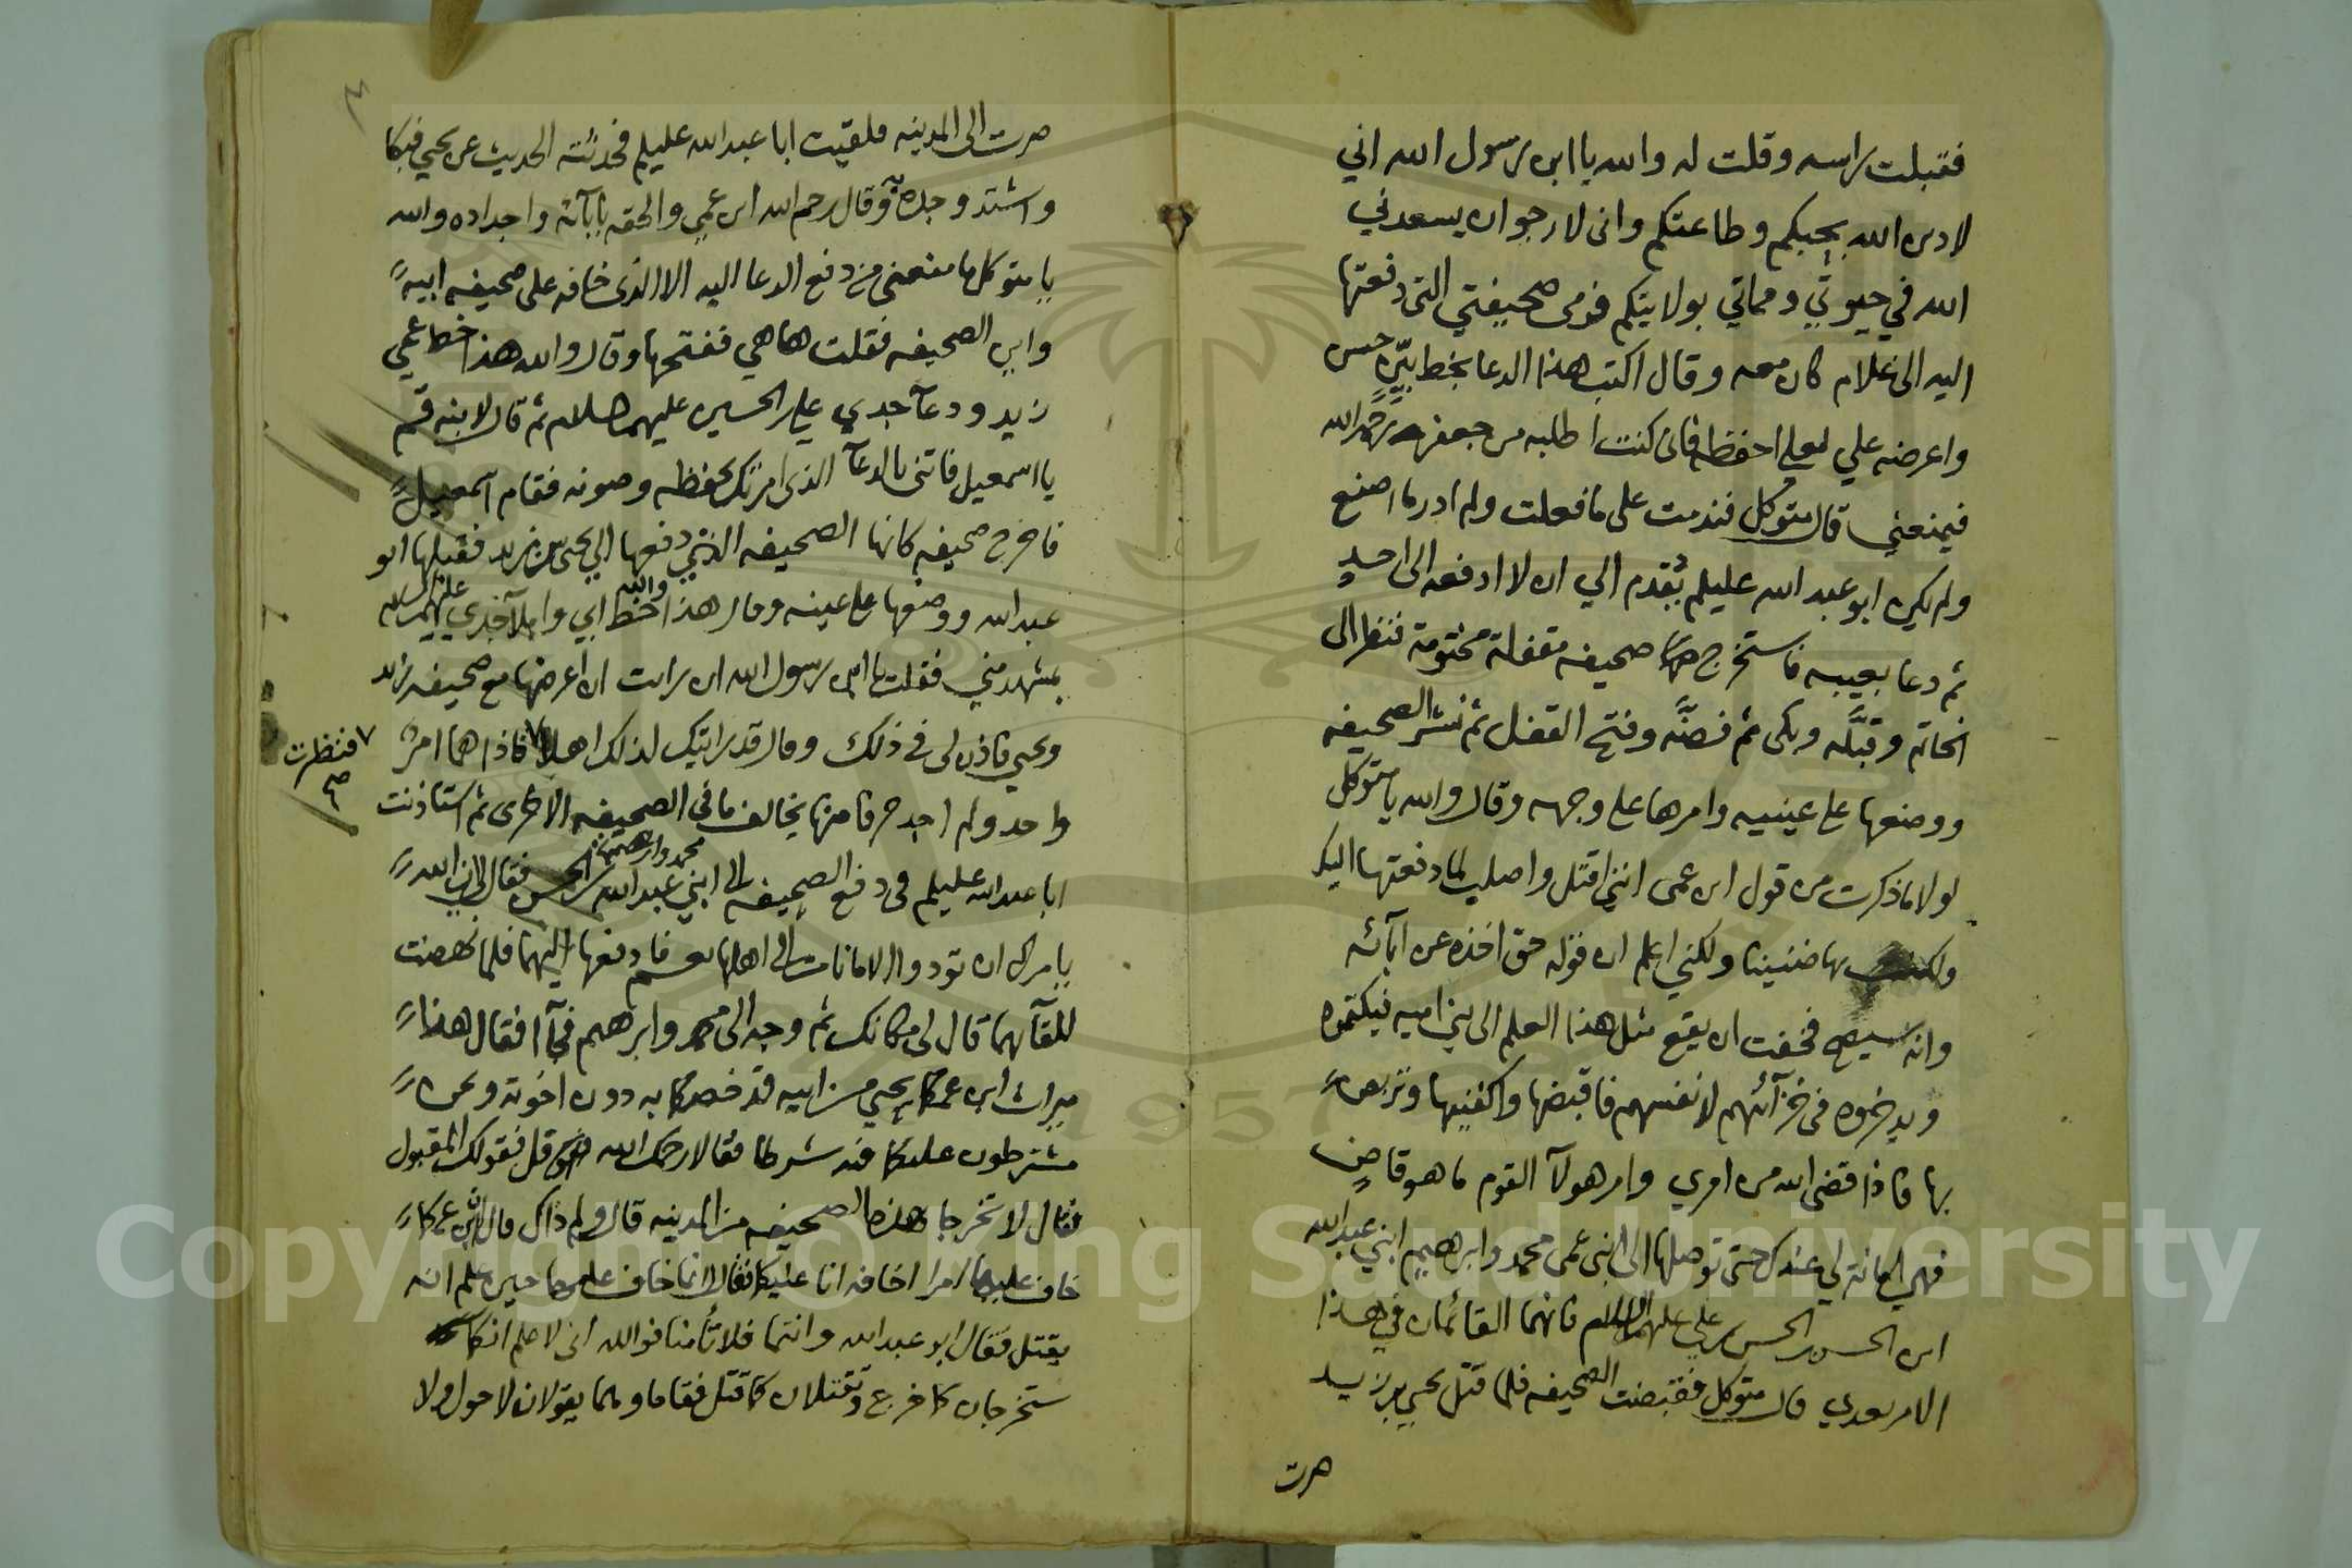 فقبلت راسه وقلت له والله يا ابن رسول الله اني
لادين الله بحبكم وطاعتكم واني لارجو ان يسعدني
الله في حيوتي ومماتي بولايتكم فرمى صحيفتي التي دفعتها
اليه الى غلام كان معه وقال اكتب هذا الدعا بخط بيّن حسن
واعرضه علي لعلي احفظه فاني كنت اطلبه من جعفر رحمه الله
فيمنعني قال متوكل فندمت على ما فعلت ولم ادر ما اصنع
ولم يكن ابو عبد الله عليلم تقدم الي ان لا ادفعه الى احدٍ
ثم دعا بعيبه فاستخرج منها صحيفه مقفلة مختومة فنظر الى
الخاتم وقبّله وبكى ثم فضّه وفتح القفل ثم نشر الصحيفه
ووضعها على عينيه وامرها على وجهه وقال والله يا متوكل
لولا ما ذكرت من قول ابن عمي انني اقتل واصلب لما دفعتها اليك
ولكنت بها ضنينا ولكني اعلم ان قوله حق اخذه عن ابآئه
وانه سيصح فخفت ان يقع مثل هذا العلم الى بني اميه فيكتموه
ويدخروه في خزآئنهم لانفسهم فاقبضها واكفنيها وتربص
بها فاذا قضى الله من امري وامر هولآ القوم ما هو قاضٍ
فهي امانة لي عندك حتى توصلها الى ابني عمي محمد وابرهيم ابني عبدالله
ابن الحسن بن الحسن بن علي عليهم السلام فانهما القائمان في هذا
الامر بعدي قال متوكل فقبضت الصحيفه فلما قتل يحيى بن زيد
صرت
٤
صرت الى المدينه فلقيت ابا عبد الله عليلم فحدثته الحديث عن يحيى فبكا
واشتد وجده به وقال رحم الله ابن عمي والحقه بابآئه واجداده والله
يا متوكل ما منعني من دفع الدعا اليه الا الذي خافه على صحيفه ابيه
واين الصحيفه فقلت ها هي ففتحها وقال والله هذا خط عمي
زيد ودعآ جدي علي بن الحسين عليهما السلام ثم قال لابنه قم
يا اسمعيل فاتني بالدعآ الذي امرتك بحفظه وصونه فقام اسمعيل
فاخرج صحيفه كانها الصحيفه التي دفعها الي يحيى بن زيد فقبلها ابو
عبد الله ووضعها على عينه وقال هذا والله خط ابي واملآ جدي عليهم السلم
بمشهد مني فقلت يا ابن رسول الله ان رايت ان اعرضها مع صحيفه زيد
ويحيى فاذن لي في ذلك وقال قد رايتك لذلك اهلا فاذا هما امر
٧ فنظرت
صح
واحد ولم اجد حرفا منها يخالف ما في الصحيفه الاخرى ثم استاذنت
ابا عبد الله عليلم في دفع الصحيفه الى ابني عبد الله بن الحسن محمد وابرهيم فقال ان الله
يامركم ان تودوا الامانات الى اهلها نعم فادفعها اليهما فلما نهضت
للقآئهما قال لي مكانك ثم وجه الى محمد وابرهيم فجآا فقال هذا
ميراث ابن عمكما يحيى من ابيه قد خصكما به دون اخوته ونحن
مشترطون عليكما فيه شرطا فقالا رحمك الله قل فقولك المقبول
فقال لا تخرجا هذه الصحيفه من المدينه قالا ولم ذاك قال ان ابن عمكما
خاف عليها امرا اخافه انا عليكما فقالا انما خاف عليها حين علم انه
يقتل فقال ابو عبد الله وانتما فلا تأمنا فوالله اني لاعلم انكما
ستخرجان كما خرج وتقتلان كما قتل فقاما وهما يقولان لا حول ولا
Copyright © King Saud University
1957